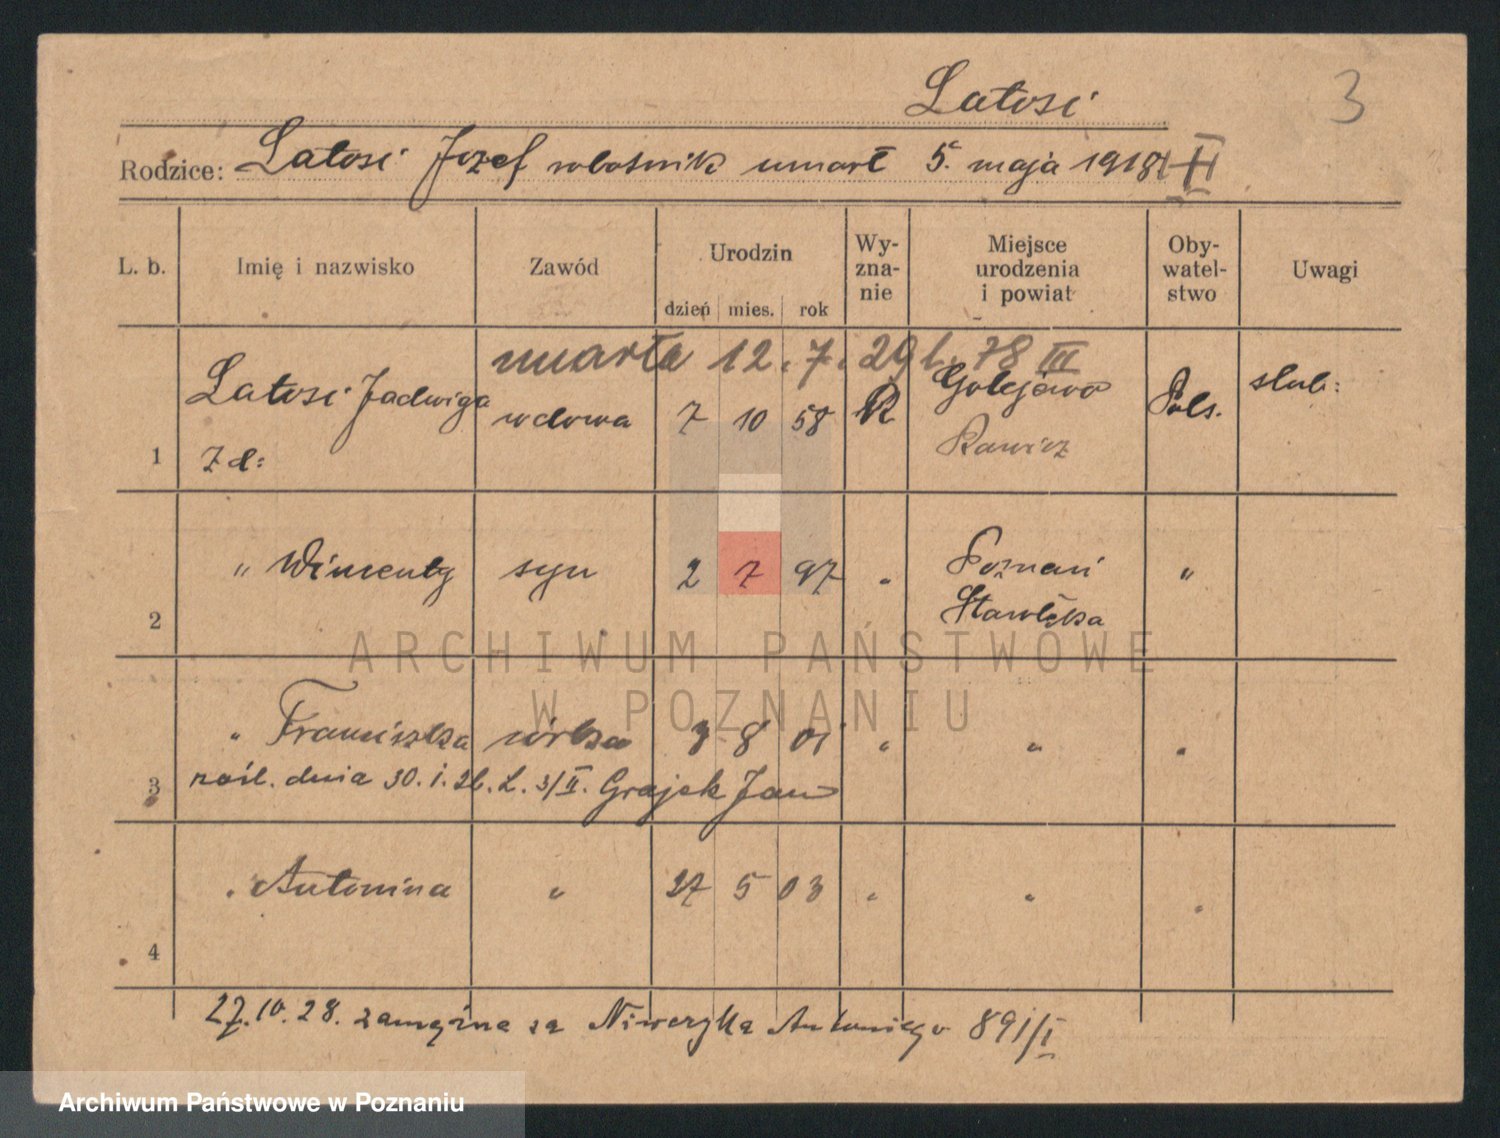 Latosi 3
Rodzice: Latosi Józef robotnik umarł 5. maja 1918
L. b. Imię i nazwisko Zawód Urodzin dzień mies. rok Wy-zna-nie Miejsce urodzenia i powiat Oby-watel-stwo Uwagi
umarła 12. 7. 29 l. 78 III
1 Latosi Jadwiga wdowa 7 10 58 R Golejewo Pols. ślub:
Rawicz
2 " Wincenty syn 2 7 97 " Poznań "
Starołęka
ARCHIWUM PAŃSTWOWE
W POZNANIU
3 " Franciszka córka 3 8 01 " " "
zaśl. dnia 30. 1. 26. L. 3/II. Grajek Jan
4 " Antonina " 27 5 03 " " "
27. 10. 28. zamężna za Niweryka Antoniego 891/I
Archiwum Państwowe w Poznaniu